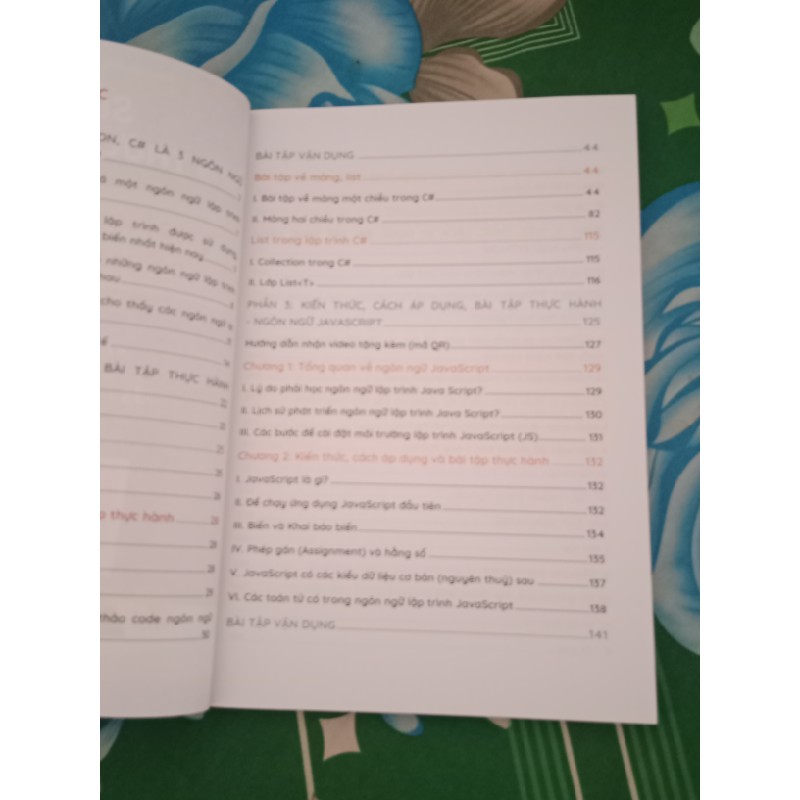 C# LÀ 3 NGÔN NGỮ
một ngôn ngữ lập trình
lập trình được sử dụng
biến nhất hiện nay
những ngôn ngữ lập trình
nhau
cho thấy các ngôn ngữ
BÀI TẬP THỰC HÀNH
thực hành 28
28
28
29
thảo code ngôn ngữ
30
BÀI TẬP VẬN DỤNG 44
Bài tập về mảng, list 44
I. Bài tập về mảng một chiều trong C# 44
II. Mảng hai chiều trong C# 82
List trong lập trình C# 115
I. Collection trong C# 115
II. Lớp List<T> 116
PHẦN 3: KIẾN THỨC, CÁCH ÁP DỤNG, BÀI TẬP THỰC HÀNH
- NGÔN NGỮ JAVASCRIPT 125
Hướng dẫn nhận video tặng kèm (mã QR) 127
Chương 1: Tổng quan về ngôn ngữ JavaScript 129
I. Lý do phải học ngôn ngữ lập trình Java Script? 129
II. Lịch sử phát triển ngôn ngữ lập trình Java Script? 130
III. Các bước để cài đặt môi trường lập trình JavaScript (JS) 131
Chương 2: Kiến thức, cách áp dụng và bài tập thực hành 132
I. JavaScript là gì? 132
II. Để chạy ứng dụng JavaScript đầu tiên 132
III. Biến và Khai báo biến 134
IV. Phép gán (Assignment) và hằng số 135
V. JavaScript có các kiểu dữ liệu cơ bản (nguyên thuỷ) sau 137
VI. Các toán tử có trong ngôn ngữ lập trình JavaScript 138
BÀI TẬP VẬN DỤNG 141